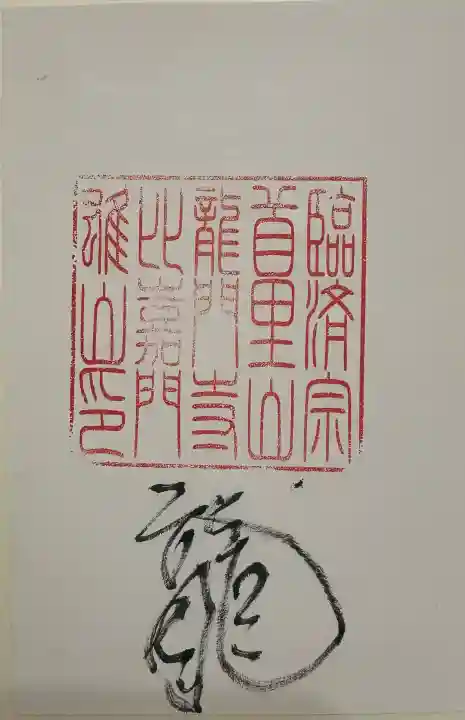 臨済宗
首里山
龍門寺
比嘉門
雄山印
龍